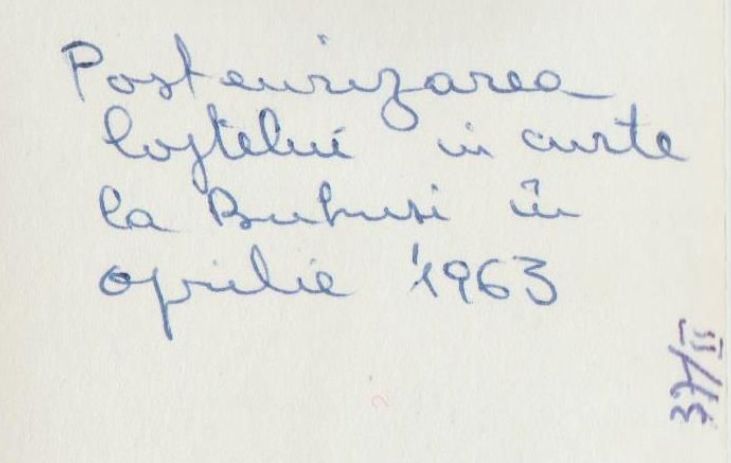 Pasteurizarea
laptelui in curte
la Buhusi în
aprilie 1963
37/II